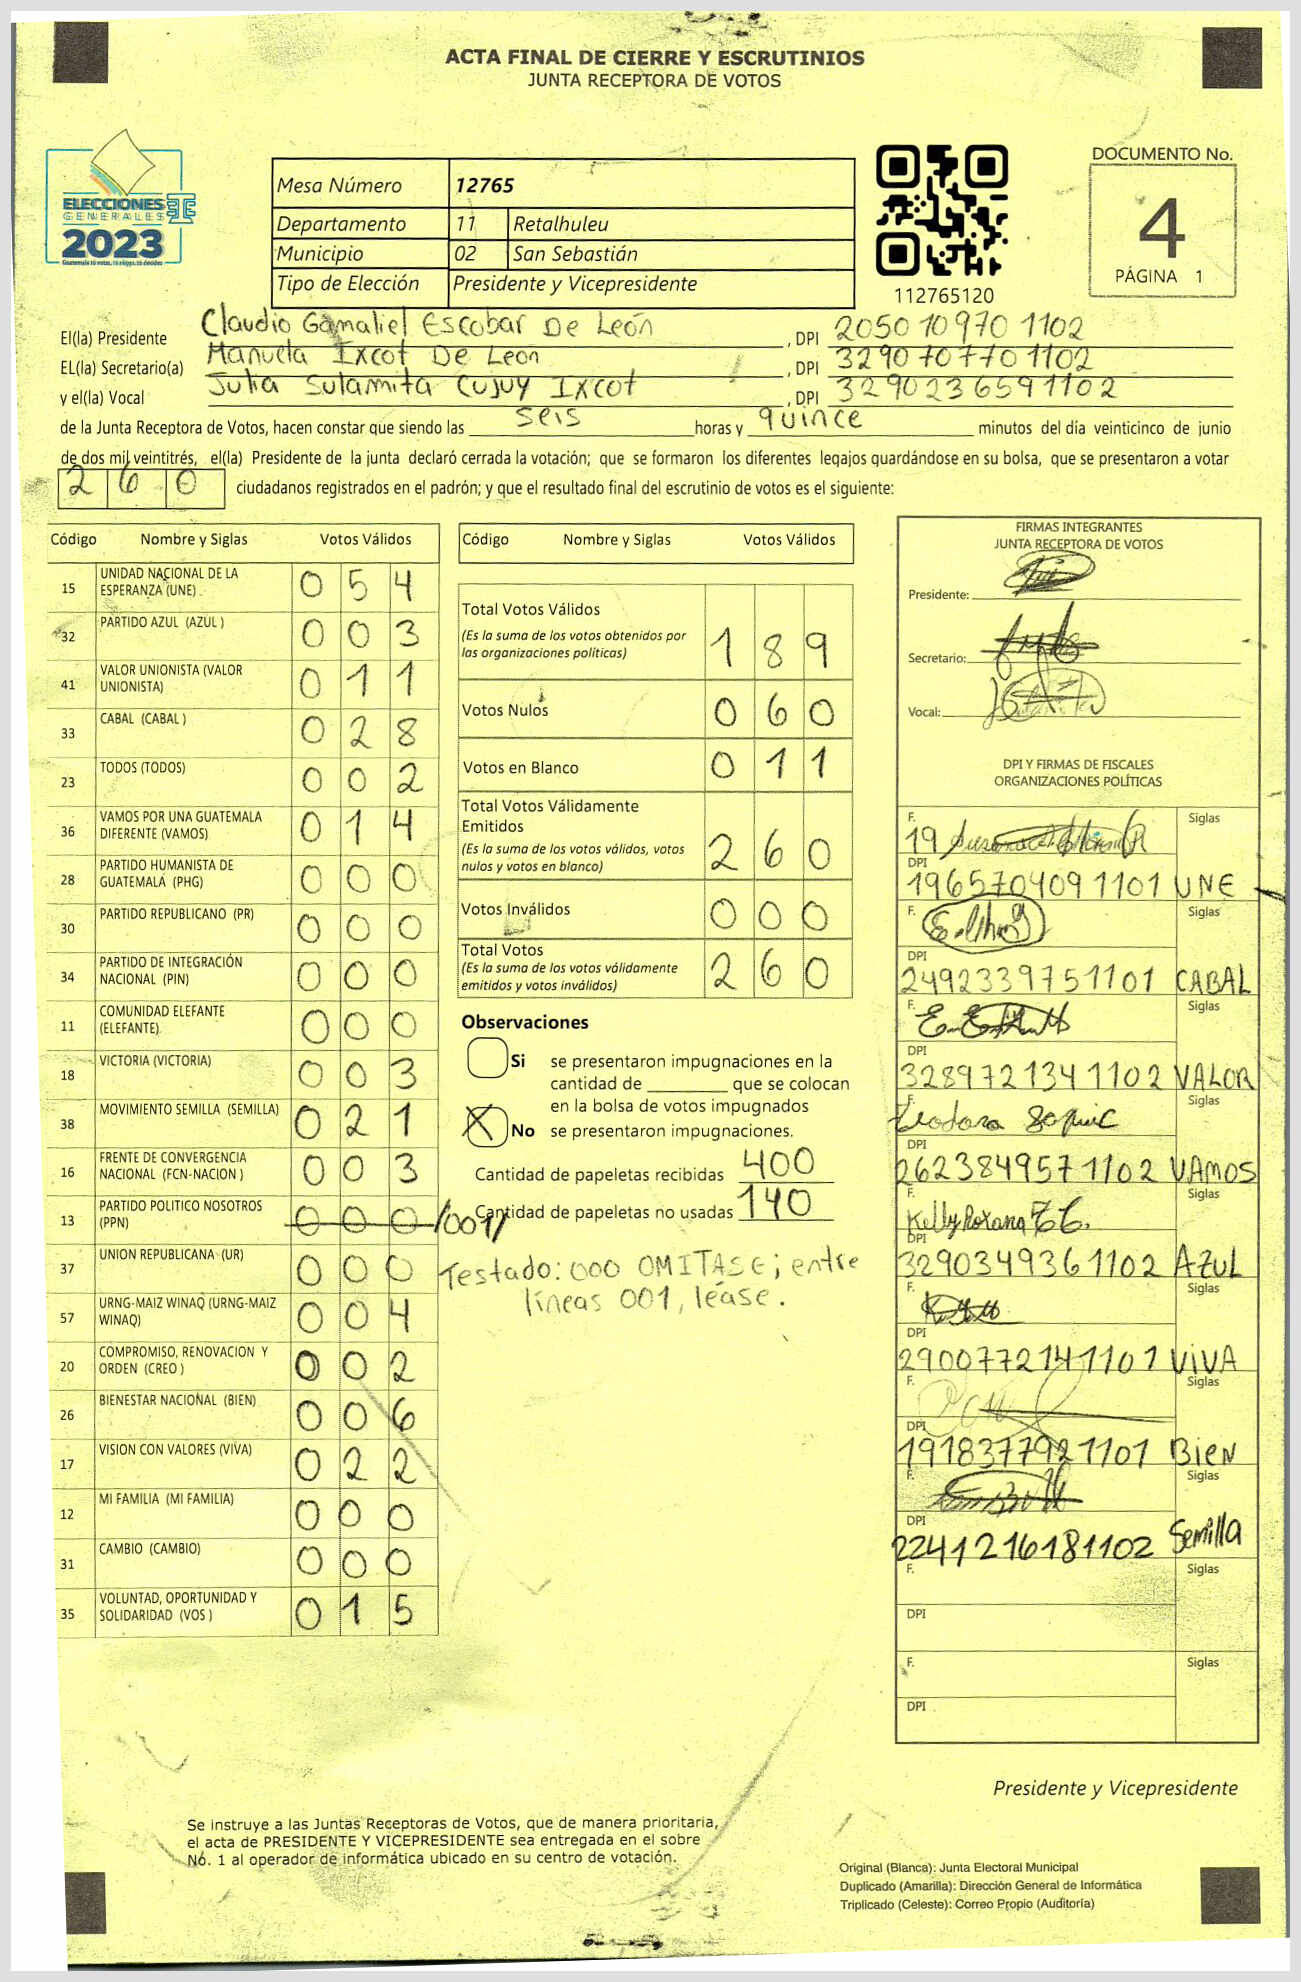 ACTA FINAL DE CIERRE Y ESCRUTINIOS
JUNTA RECEPTORA DE VOTOS
ELECCIONES
GENERALES
2023
Mesa Número 12765
Departamento 11 Retalhuleu
Municipio 02 San Sebastián
Tipo de Elección Presidente y Vicepresidente
112765120
DOCUMENTO No.
4
PÁGINA 1
El(la) Presidente Claudio Gamaliel Escobar De León, DPI 2050109701102
EL(la) Secretario(a) Manuela Ixcot De Leon, DPI 3290707701102
y el(la) Vocal Julia Sulamita Cujuy Ixcot, DPI 3290236591102
de la Junta Receptora de Votos, hacen constar que siendo las seis horas y quince minutos del día veinticinco de junio
de dos mil veintitrés, el(la) Presidente de la junta declaró cerrada la votación; que se formaron los diferentes legajos guardándose en su bolsa, que se presentaron a votar
260 ciudadanos registrados en el padrón; y que el resultado final del escrutinio de votos es el siguiente:
Código Nombre y Siglas Votos Válidos
15 UNIDAD NACIONAL DE LA ESPERANZA (UNE) 054
32 PARTIDO AZUL (AZUL ) 003
41 VALOR UNIONISTA (VALOR UNIONISTA) 011
33 CABAL (CABAL ) 028
23 TODOS (TODOS) 002
36 VAMOS POR UNA GUATEMALA DIFERENTE (VAMOS) 014
28 PARTIDO HUMANISTA DE GUATEMALA (PHG) 000
30 PARTIDO REPUBLICANO (PR) 000
34 PARTIDO DE INTEGRACIÓN NACIONAL (PIN) 000
11 COMUNIDAD ELEFANTE (ELEFANTE) 000
18 VICTORIA (VICTORIA) 003
38 MOVIMIENTO SEMILLA (SEMILLA) 021
16 FRENTE DE CONVERGENCIA NACIONAL (FCN-NACION ) 003
13 PARTIDO POLITICO NOSOTROS (PPN) 000 /001/
37 UNION REPUBLICANA (UR) 000
57 URNG-MAIZ WINAQ (URNG-MAIZ WINAQ) 004
20 COMPROMISO, RENOVACION Y ORDEN (CREO ) 002
26 BIENESTAR NACIONAL (BIEN) 006
17 VISION CON VALORES (VIVA) 022
12 MI FAMILIA (MI FAMILIA) 000
31 CAMBIO (CAMBIO) 000
35 VOLUNTAD, OPORTUNIDAD Y SOLIDARIDAD (VOS ) 015
Código Nombre y Siglas Votos Válidos
Total Votos Válidos 189
(Es la suma de los votos obtenidos por
las organizaciones políticas)
Votos Nulos 060
Votos en Blanco 011
Total Votos Válidamente
Emitidos 260
(Es la suma de los votos válidos, votos
nulos y votos en blanco)
Votos Inválidos 000
Total Votos 260
(Es la suma de los votos válidamente
emitidos y votos inválidos)
Observaciones
Si se presentaron impugnaciones en la
cantidad de ________ que se colocan
en la bolsa de votos impugnados
X No se presentaron impugnaciones.
Cantidad de papeletas recibidas 400
Cantidad de papeletas no usadas 140
Testado: 000 OMITASE; entre
lineas 001, léase.
FIRMAS INTEGRANTES
JUNTA RECEPTORA DE VOTOS
Presidente:
Secretario:
Vocal:
DPI Y FIRMAS DE FISCALES
ORGANIZACIONES POLÍTICAS
F. 19 Siglas
DPI 1965704091101 UNE
F. Siglas
DPI 2492339751101 CABAL
F. Siglas
DPI 3289721341102 VALOR
F. Siglas
DPI 2623849571102 VAMOS
F. Kelly Roxana Siglas
DPI 3290349361102 AZUL
F. Siglas
DPI 2900772141101 VIVA
F. Siglas
DPI 1918377921101 Bien
F. Siglas
DPI 2241216181102 Semilla
F. Siglas
DPI
F. Siglas
DPI
Presidente y Vicepresidente
Se instruye a las Juntas Receptoras de Votos, que de manera prioritaria,
el acta de PRESIDENTE Y VICEPRESIDENTE sea entregada en el sobre
No. 1 al operador de informática ubicado en su centro de votación.
Original (Blanca): Junta Electoral Municipal
Duplicado (Amarilla): Dirección General de Informática
Triplicado (Celeste): Correo Propio (Auditoría)